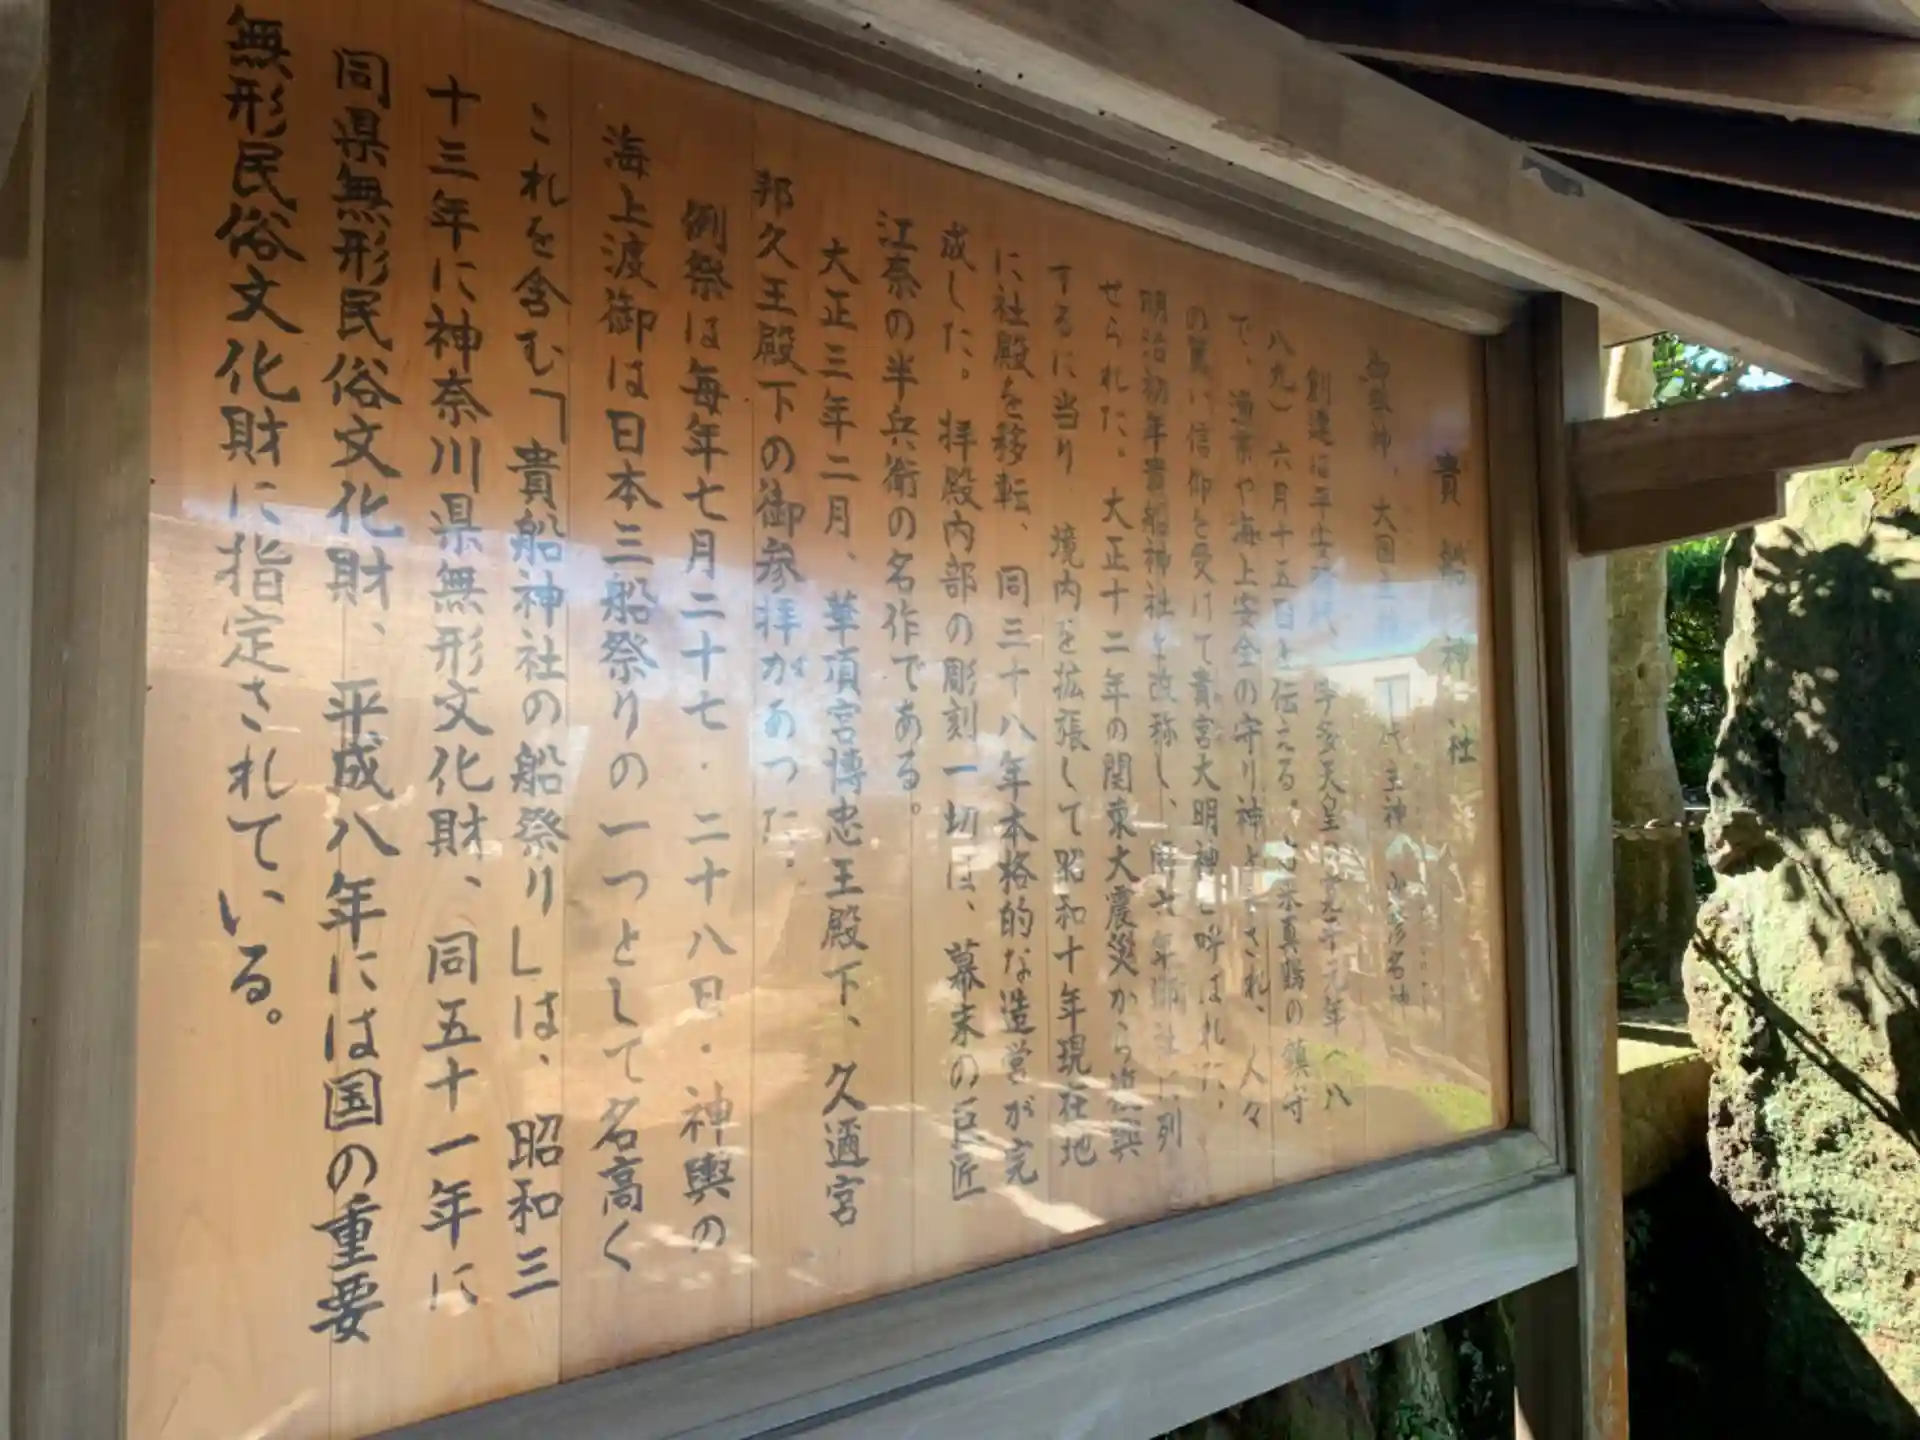 貴船神社
御祭神、大国主神 事代主神
創建は平安時代、宇多天皇の寛平元年(八
八九)六月十五日と伝える。古来真鶴の鎮守
で、漁業や海上安全の守り神とされ、人々
の篤い信仰を受けて貴宮大明神と呼ばれた。
明治初年貴船神社と改称し、同六年郷社に列
せられた。大正十二年の関東大震災から復興
するに当り境内を拡張して昭和十年現在地
に社殿を移転、同三十八年本格的な造営が完
成した。拝殿内部の彫刻一切は、幕末の巨匠
江奈の半兵衛の名作である。
大正三年二月、華頂宮博忠王殿下、久邇宮
邦久王殿下の御参拝があった。
例祭は毎年七月二十七・二十八日・神輿の
海上渡御は日本三船祭りの一つとして名高く
これを含む「貴船神社の船祭り」は、昭和三
十三年に神奈川県無形文化財、同五十一年に
同県無形民俗文化財、平成八年には国の重要
無形民俗文化財に指定されている。